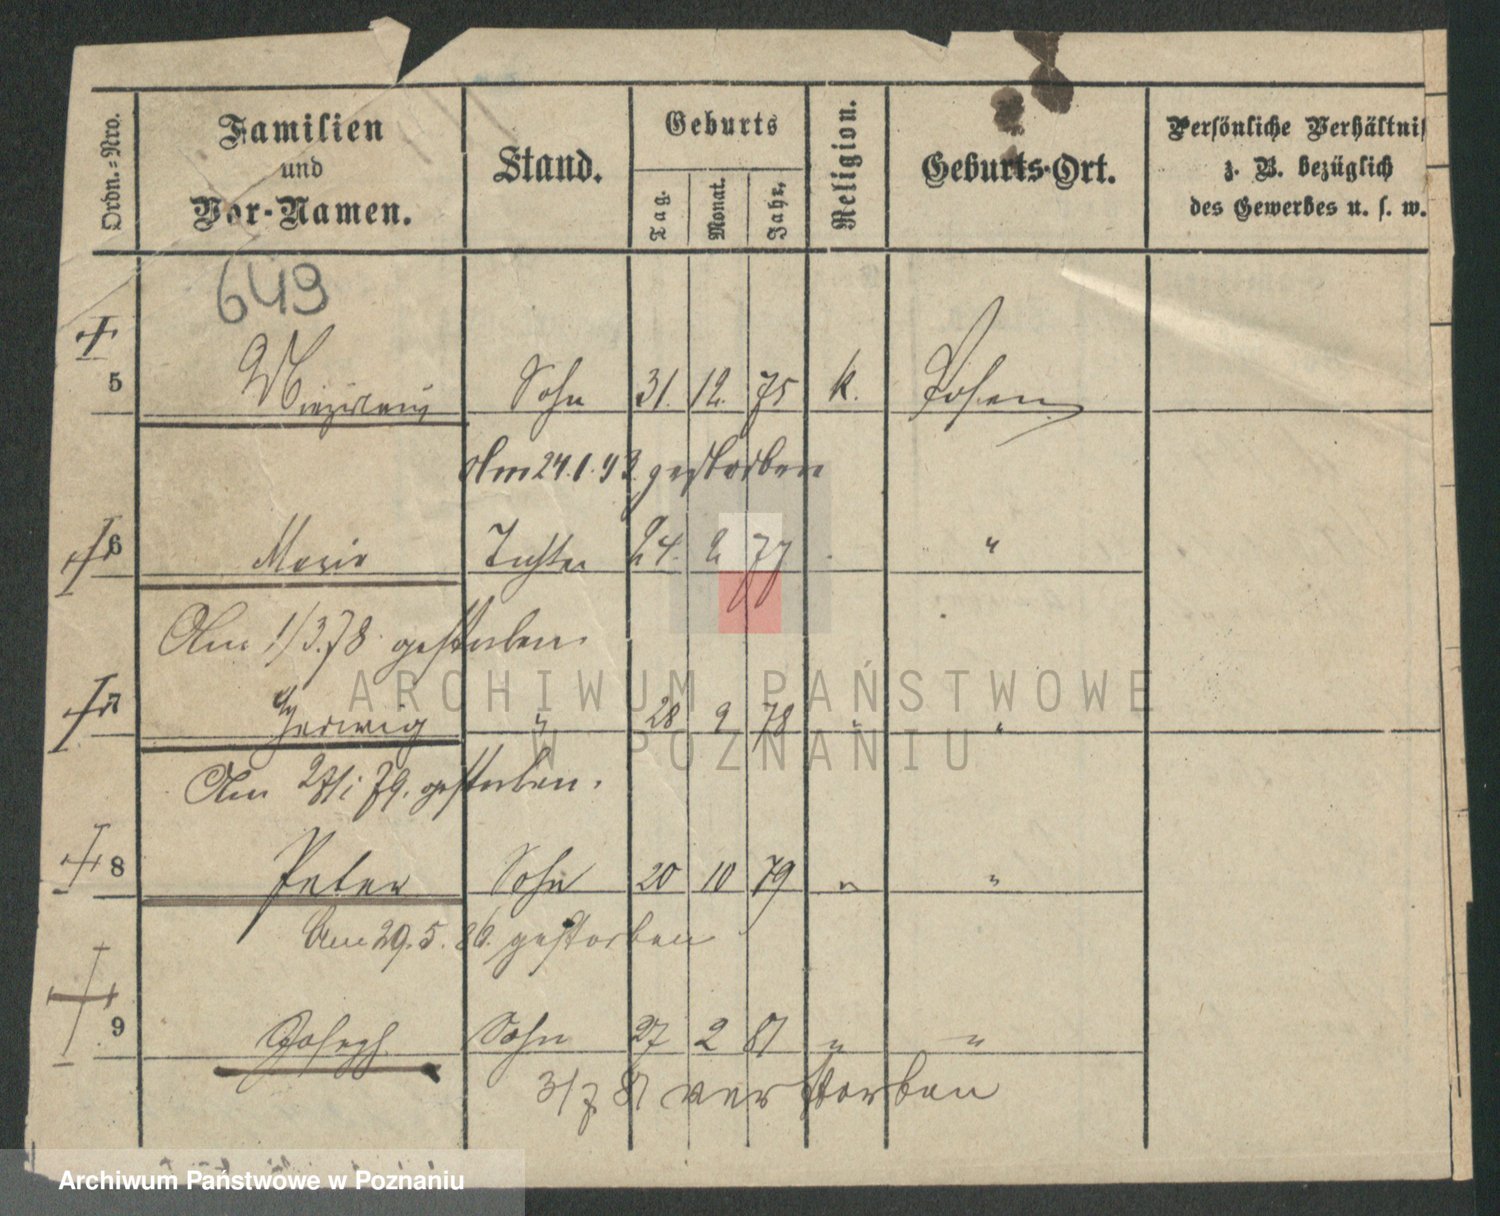 Ordn.=Nro.
Familien
und
Vor-Namen.
Stand.
Geburts
Tag.
Monat.
Jahr.
Religion.
Geburts-Ort.
Persönliche Verhältnis
z. B. bezüglich
des Gewerbes u. s. w.
649
5 Sohn 31. 12. 75 k. Posen
Am 24.1.93. gestorben
6 Marie Tochter 24. 2 77 "
Am 1/3.78. gestorben.
7 Hedwig " 28 9 78 " "
Am gestorben.
8 Peter Sohn 20 10 79 " "
Am 29.5.86. gestorben
9 Joseph Sohn 27 2 81 " "
3/7 81 verstorben
ARCHIWUM PAŃSTWOWE
W POZNANIU
Archiwum Państwowe w Poznaniu